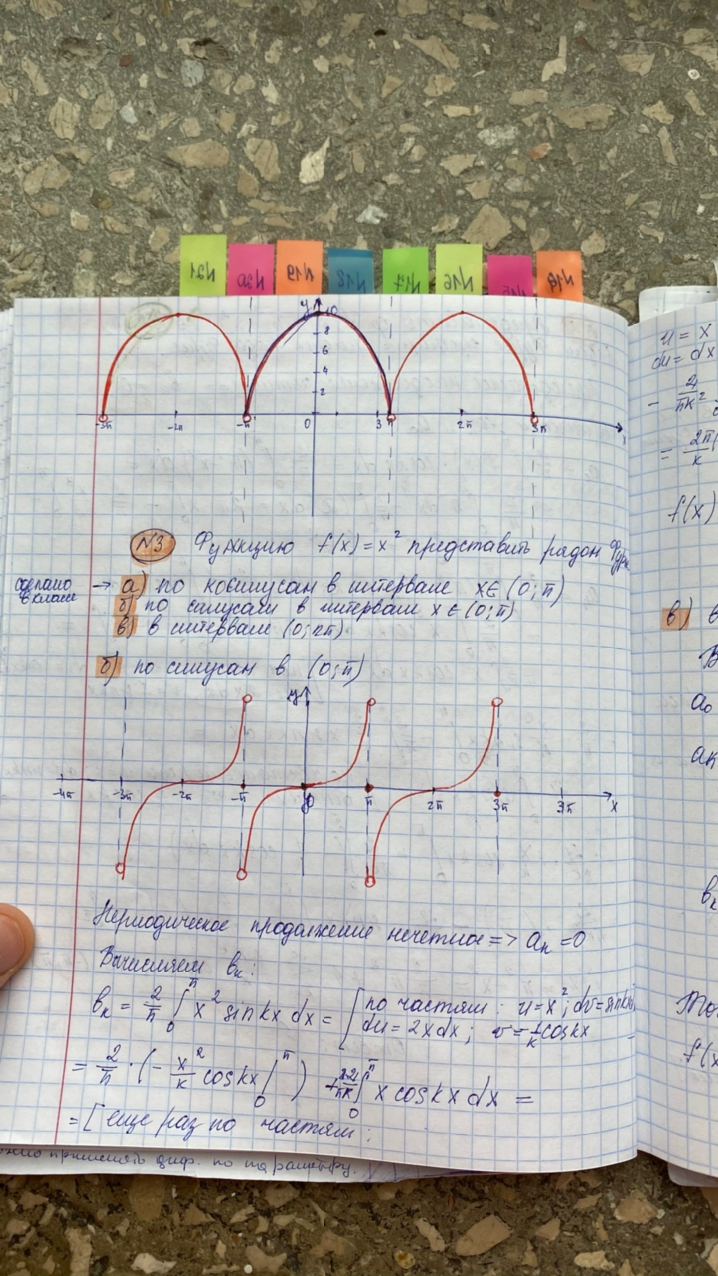 N21
N20
N19
N18
N17
N16
N15
y
10
8
6
4
2
-3π
-2π
-π
0
3
π
2π
3π
x
N3 Функцию f(x) = x² представить рядом Фурье
сделано
в классе
→ а) по косинусам в интервале x ∈ (0; π)
б) по синусам в интервале x ∈ (0; π)
в) в интервале (0; 2π)
б) по синусам в (0; π)
y
-4π
-3π
-2π
-π
0
π
2π
3π
3π
x
Периодическое продолжение нечетное => aₖ = 0
Вычисляем bₖ:
bₖ = 2/π ∫₀^π x² sin kx dx = [по частям: u = x²; dv = sin kx
du = 2x dx; v = -1/k cos kx
= 2/π · (- x²/k cos kx |₀^π) + 2·2/πk ∫₀^π x cos kx dx =
= [еще раз по частям:
u = x
du = dx
f(x)
в)
a₀
aₖ
bₖ
f(x